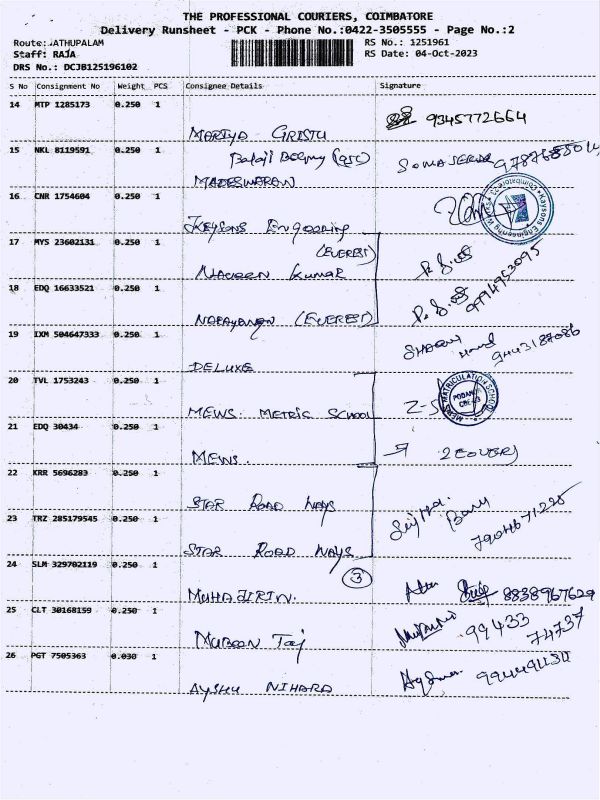 THE PROFESSIONAL COURIERS, COIMBATORE
Delivery Runsheet - PCK - Phone No.:0422-3505555 - Page No.:2
Route: ATHUPALAM RS No.: 1251961
Staff: RAJA RS Date: 04-Oct-2023
DRS No.: DCJB125196102
S No Consignment No Weight PCS Consignee Details Signature
14 MTP 1285173 0.250 1
9345772664
MARIYA CRISTU
15 NKL 8119591 0.250 1
MADESWARAN
16 CNR 1754604 0.250 1
KEYSONS
Kaysons Engineering Works Coimbatore
17 MYS 23602131 0.250 1
(EVEREST)
NAVEEN KUMAR
18 EDQ 16633521 0.250 1
9994953095
NARAYANAN (EVEREST)
19 IXM 504647333 0.250 1
9443187086
DELUXE
20 TVL 1753243 0.250 1
MEWS MATRICULATION SCHOOL
MEWS. METRIC SCHOOL
21 EDQ 30434 0.250 1
2 COVERS
MEWS.
22 KRR 5696283 0.250 1
STAR ROAD WAYS
23 TRZ 285179545 0.250 1
7904671225
STAR ROAD WAYS
24 SLM 329702119 0.250 1
3
8838967629
MUHAJIRIN.
25 CLT 30168159 0.250 1
99433 74737
MUBEEN Taj
26 PGT 7505363 0.030 1
AYSHU NIHARA